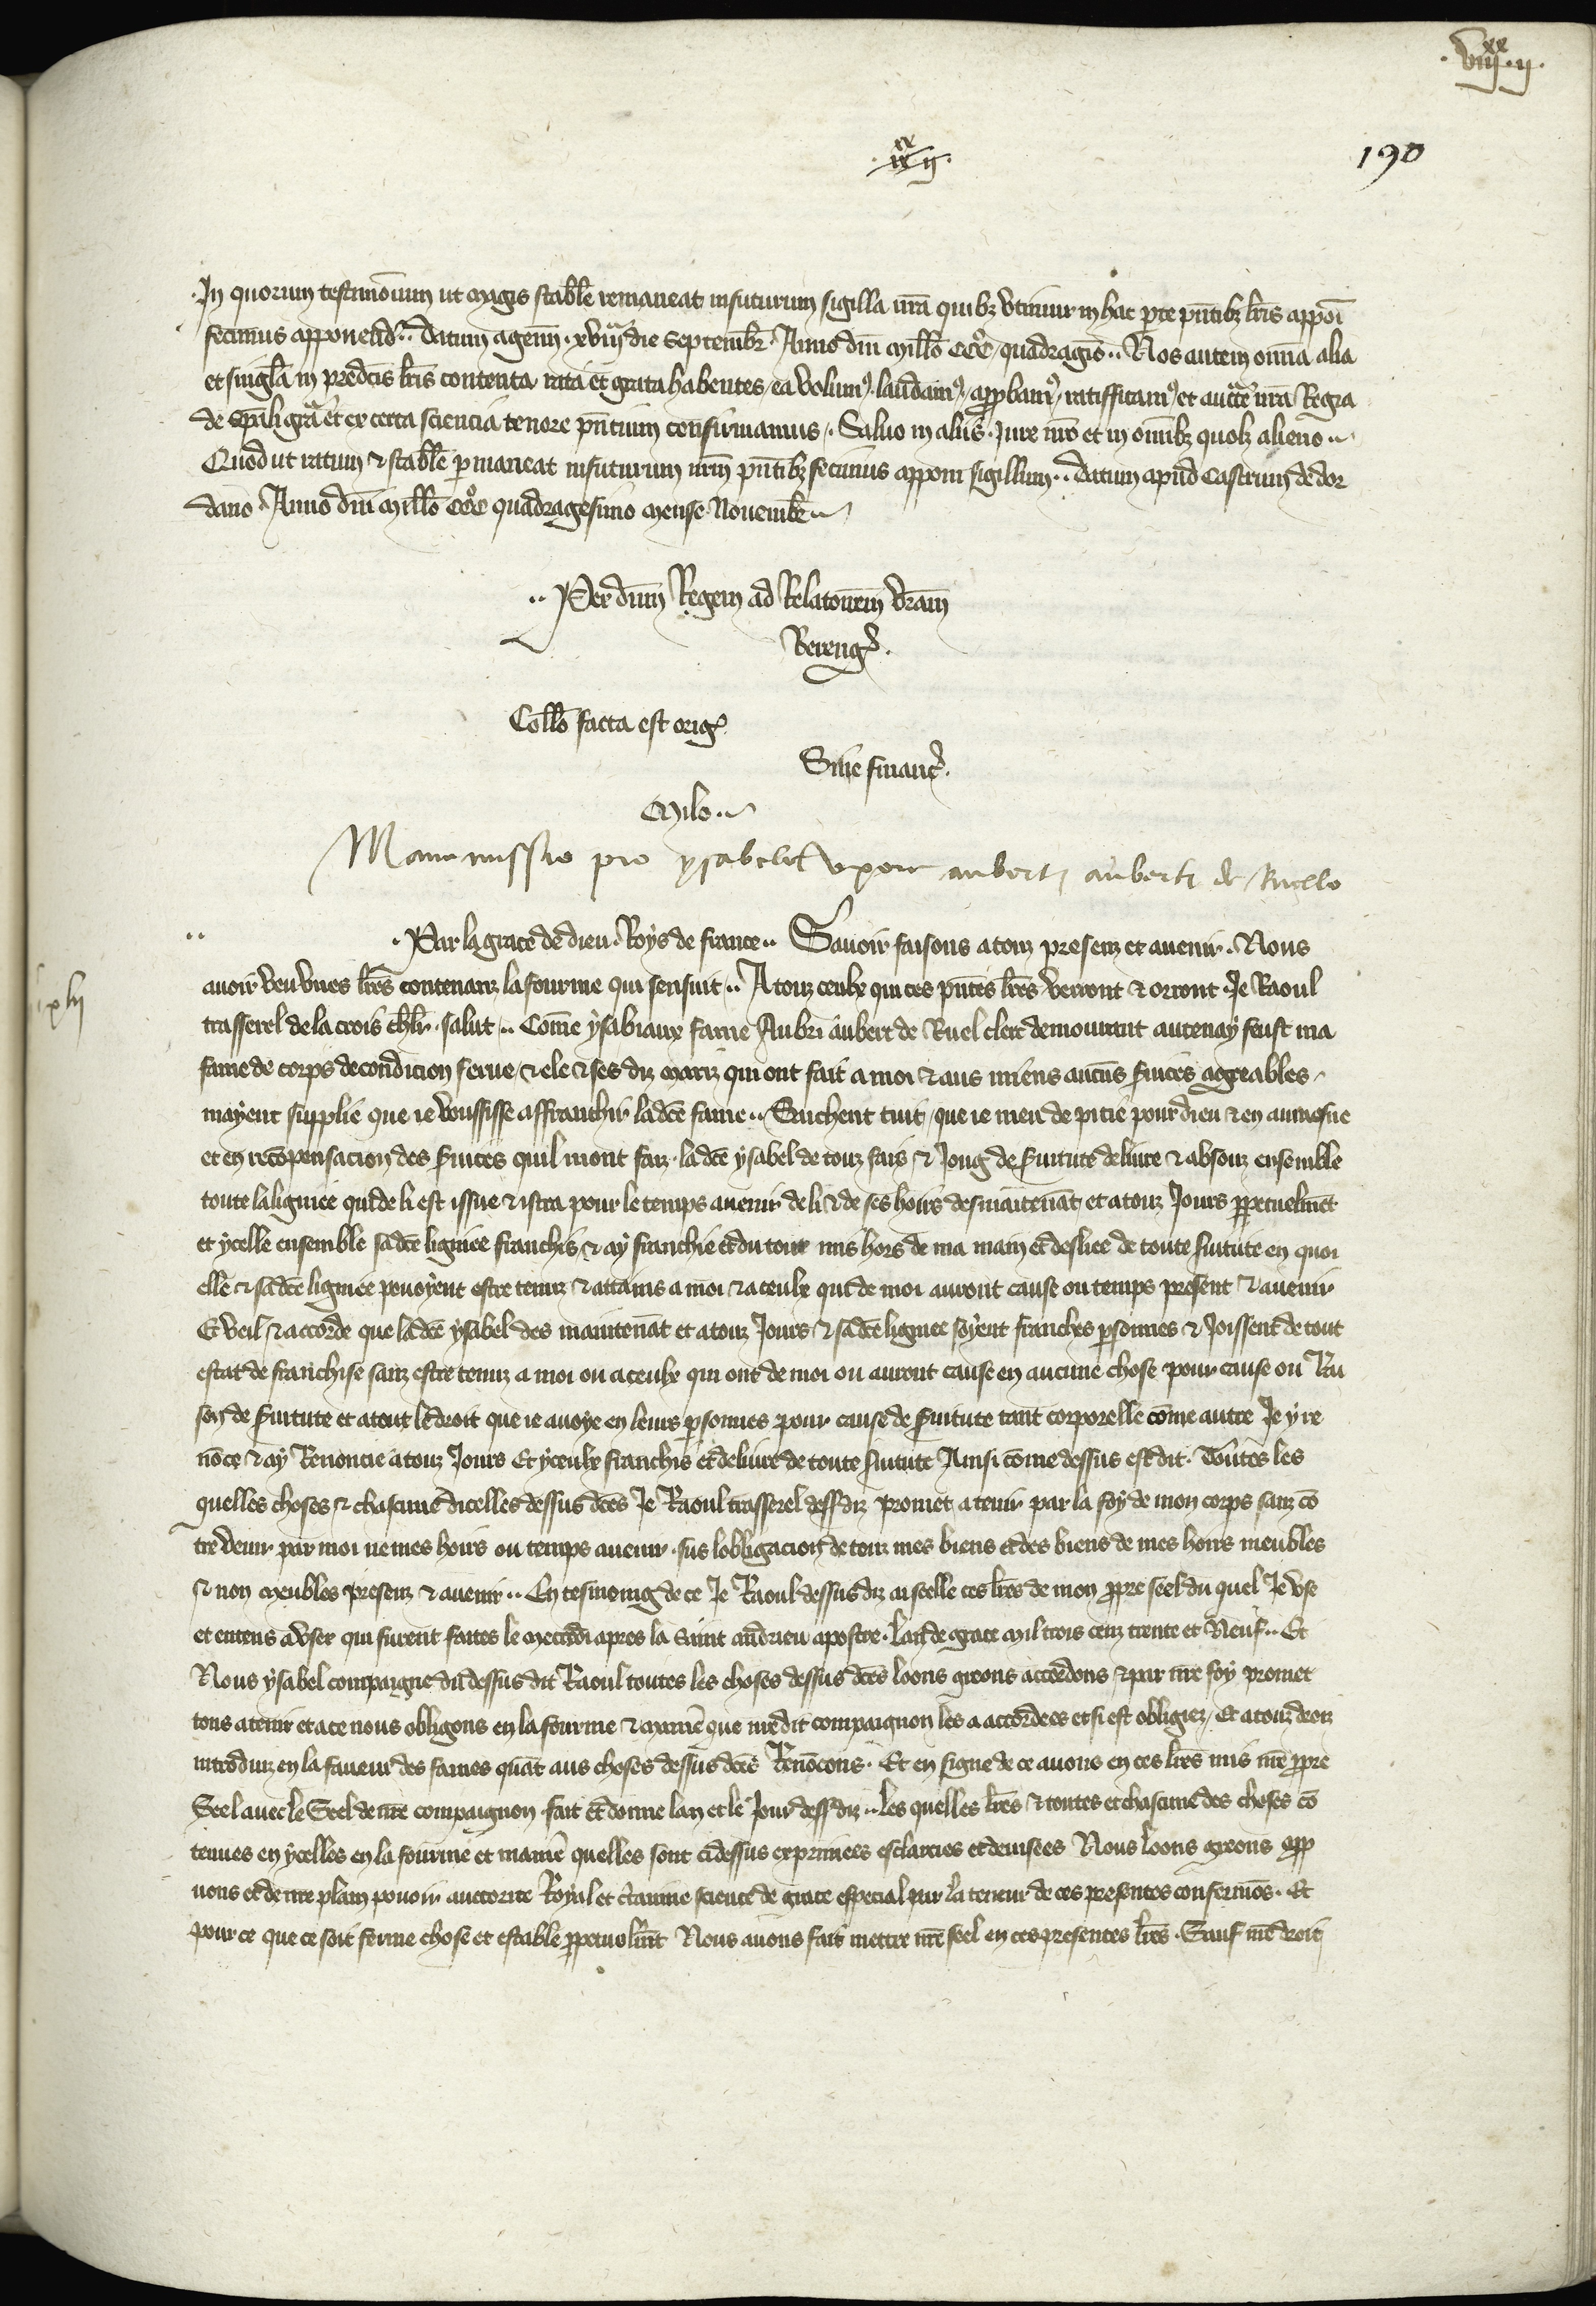 .viij.xx ij.
.ix.xx ij.
190
In quorum testimonium ut magis stabile remaneat in futurum sigilla nr̃a quibz utimur in hac parte pñtibz lr̃is apponi
fecimus apponend. Datum agenn. xviij die Septembr. Anno dñi millo CCCo quadragiō. Nos autem omnia alia
et singla in predcis lr̃is contenta rata et grata habentes, ea volum9, laudam9, approbam9, ratifficam9, et aucte nr̃a Regia
de sp̃ali gr̃a et ex certa sciencia tenore pñtium confirmamus. Saluo in aliis Jure nrō et in omibz quolz alieno.
Quod ut ratum & stabile permaneat in futurum nrm̃ pñtibz fecimus apponi sigillum. Datum apud Castrum de dor
dano Anno dñi millo CCCo quadragesimo mense Nouembr.
Per dñm Regem ad Relatonem vr̃am
Bereng.
Collo facta est orig.
Sine financ.
Milo.
Manumissio pro ysabele uxore auberti auberti de Ruello
.Par la grace de dieu Roys de france. Sauoir faisons a touz presenz et auenir. Nous
xlij
auoir veu unes lr̃es contenanz la fourme qui sensuit. A touz ceulx qui ces pñtes lr̃es verront & orront Je Raoul
trasserel de la crois chlr. salut. Cõme ysabiaux fame Aubri aubert de Ruel clerc demourant autenay feust ma
fame de corps de condicion serue, & ele & ses diz mariz qui ont fait a moi & aus miens aucuns seruices aggreables
mayent supplie que ie vousisse affranchir ladce fame. Sachent tuit, que ie meu de pitie pour dieu & en aumosne
et en recõpensacion des seruices quil mont faiz. ladce ysabel de touz fais & Joug de seruitute deliure & absouz ensemble
toute la lignice qui de li est issue & istra pour le temps auenir de li & de ses hoirs des maitenãt et a touz Jours perpetuelmẽt
et ycelle ensemble sadce lignice franchis & ay franchie et du tout mis hors de ma main et desliee de toute seruitute en quoi
elle & sadce lignice pouoyent estre tenuz & attains a moi & a ceulx qui de moi auront cause ou temps present & auenir
Et veil & accorde que ladce ysabel des maintenãt et a touz Jours & sadce lignice soyent franches personnes & Joissent de tout
estat de franchise sanz estre tenuz a moi ou a ceulx qui ont de moi ou auront cause en aucune chose pour cause ou Rai
son de seruitute et a tout le droit que ie auoye en leurs personnes pour cause de seruitute tant corporelle cõme autre Je y re
nõce & ay Renoncie a touz Jours Et yceulx franchis et deliure de toute seruitute Ainsi cõme dessus est dit. Toutes les
quelles choses & chascune dicelles dessus dces Je Raoul trasserel dessdiz promet a tenir par la foy de mon corps sanz cõ
tre venir par moi ne mes hoirs ou temps auenir. sus lobligacion de touz mes biens et des biens de mes hoirs meubles
& non meubles presenz & auenir. En tesmoing de ce Je Raoul dessus diz ai seelle ces lr̃es de mon propre seel du quel Je use
et entens a user qui furent faites le mecredi apres la saint andrieu apostre. lan de grace mil trois cenz trente et Neuf. Et
Nous ysabel compaigne du dessus dit Raoul toutes les choses dessus dces loons greons accordons & par nr̃e foy promet
tons a tenir et a ce nous obligons en la fourme & manie que nredit compaignon les a accordees et si est obligiez, Et a touz droiz
introduiz en la faueur des fames quãt aus choses dessus dces Renõcons. Et en signe de ce auons en ces lr̃es mis nr̃e propre
Seel auec le Seel de nr̃e compaignon fait et donne lan et le Jour dessdiz. les quelles lr̃es & toutes et chascune des choses cõ
tenues en ycelles en la fourme et maniere quelles sont ci dessus exprimees esclarcies et deuisees Nous loons greons app
uons et de nr̃e plain pouoir auctorite Royal et certaine science de grace especial par la teneur de ces presentes confermõs. Et
pour ce que ce soit ferme chose et estable perpetuelmẽt Nous auons fait mettre nr̃e seel en ces presentes lr̃es. Sauf nr̃e droit